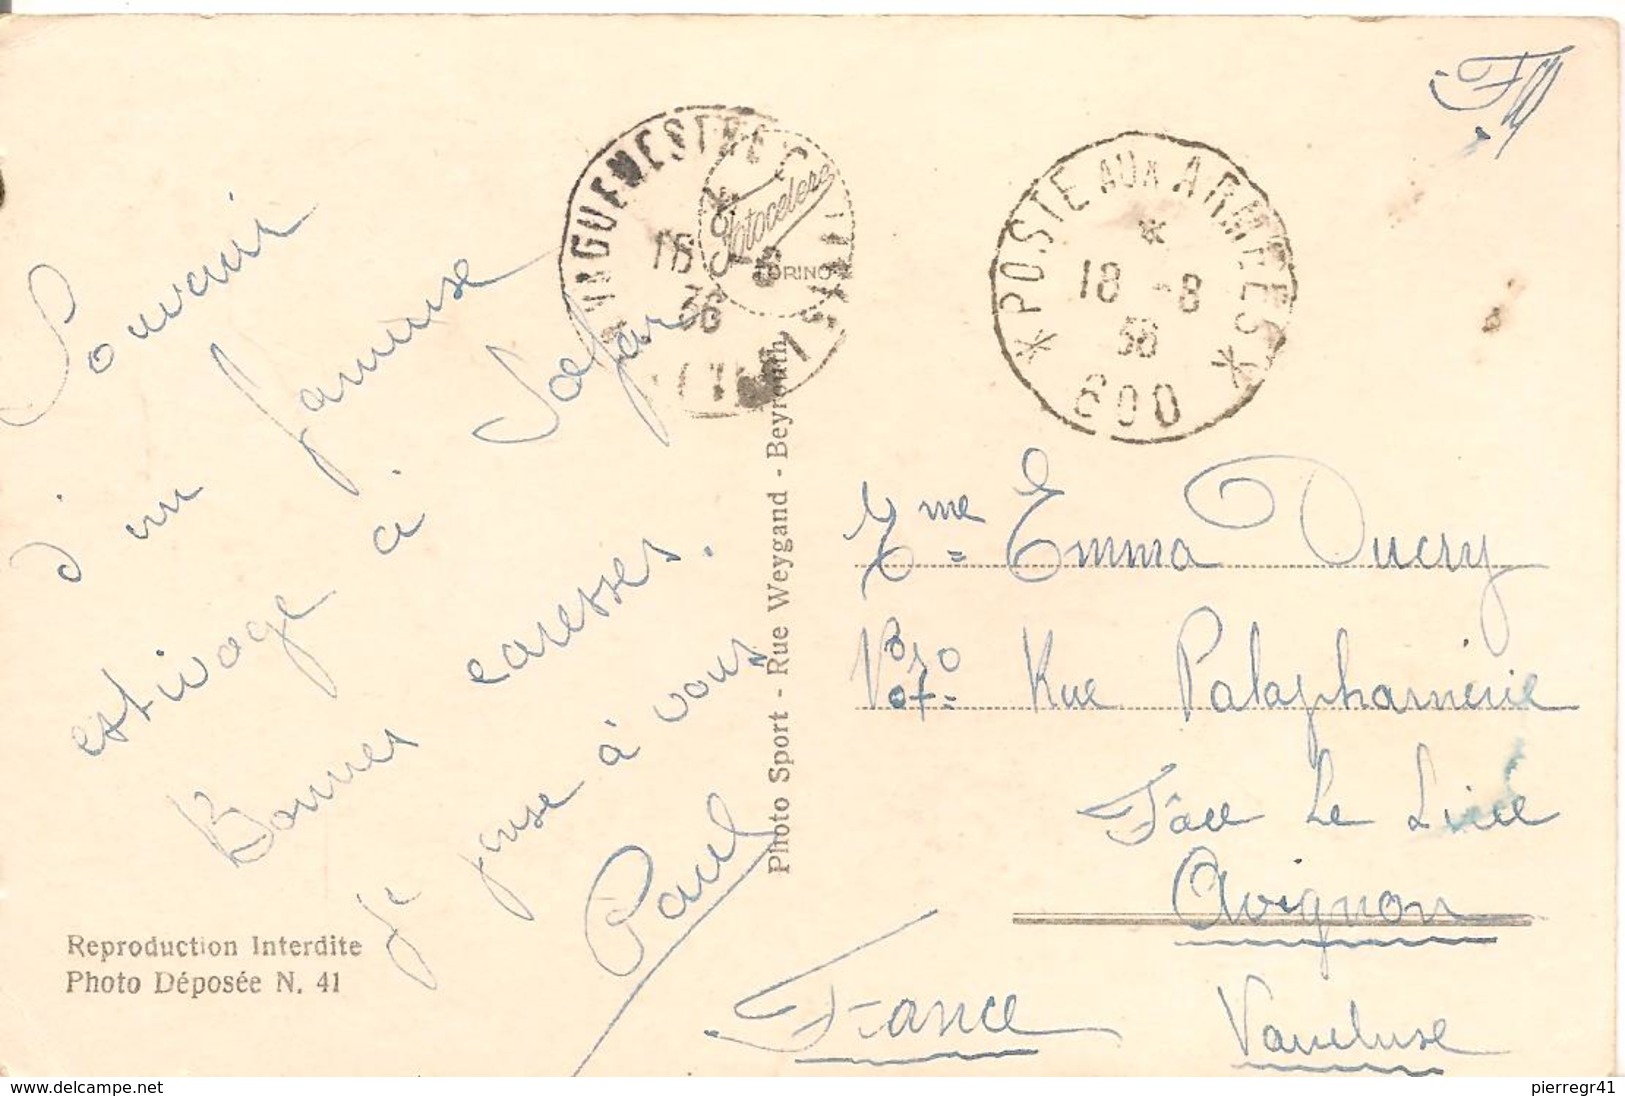 FM
Souvenir
d'un fameuse
estivage à Sofar
Bonnes caresses.
Je pense à vous
Paul
Reproduction Interdite
Photo Déposée N. 41
Photo Sport - Rue Weygand - Beyrouth
VAGUEMESTRE
16 8
36
Fotocelere
TORINO
* POSTE AUX ARMEES *
*
18 -8
36
600
Mme Emma Ducry
Rue Palapharnerie
Face Le Lice
Avignon
Vaucluse
France
delcampe.net
pierregr41